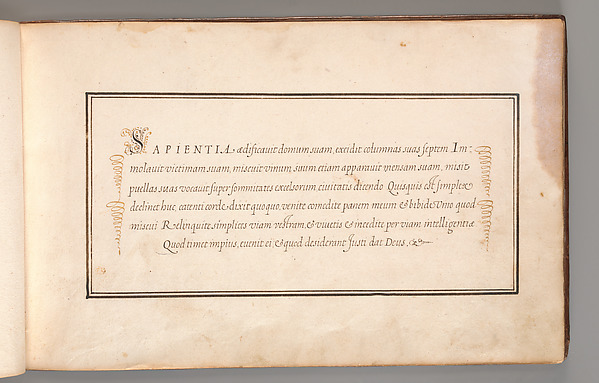 SAPIENTIA ædificauit domum suam, excidit columnas suas septem Im-
molauit victimam suam, miscuit vinum, suum etiam apparauit mensam suam, misit
puellas suas vocauit super sommitates excelsorum ciuitatis dicendo Quisquis est simplex
declinet huc, catenti corde, dixit quoquo, venite comedite panem meum & bibide Vino quod
miscui Relinquite simplices viam vestram, & viuetis & incedite per viam intelligentiæ
Quod timet impius, euenit ei, & quod desiderant Justi dat Deus.